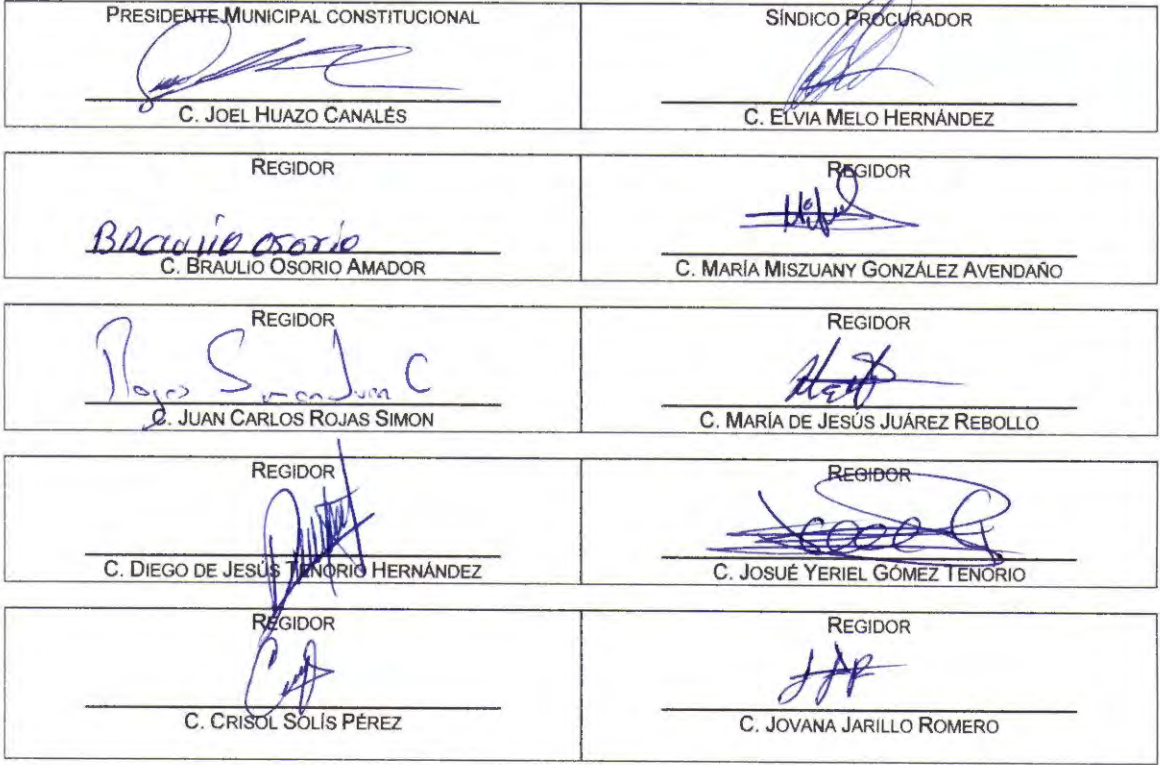 PRESIDENTE MUNICIPAL CONSTITUCIONAL
C. JOEL HUAZO CANALÉS
SÍNDICO PROCURADOR
C. ELVIA MELO HERNÁNDEZ
REGIDOR
Braulio Osorio
C. BRAULIO OSORIO AMADOR
REGIDOR
C. MARÍA MISZUANY GONZÁLEZ AVENDAÑO
REGIDOR
Rojas Simon Juan C
C. JUAN CARLOS ROJAS SIMON
REGIDOR
C. MARÍA DE JESÚS JUÁREZ REBOLLO
REGIDOR
C. DIEGO DE JESÚS TENORIO HERNÁNDEZ
REGIDOR
C. JOSUÉ YERIEL GÓMEZ TENORIO
REGIDOR
C. CRISOL SOLÍS PÉREZ
REGIDOR
C. JOVANA JARILLO ROMERO